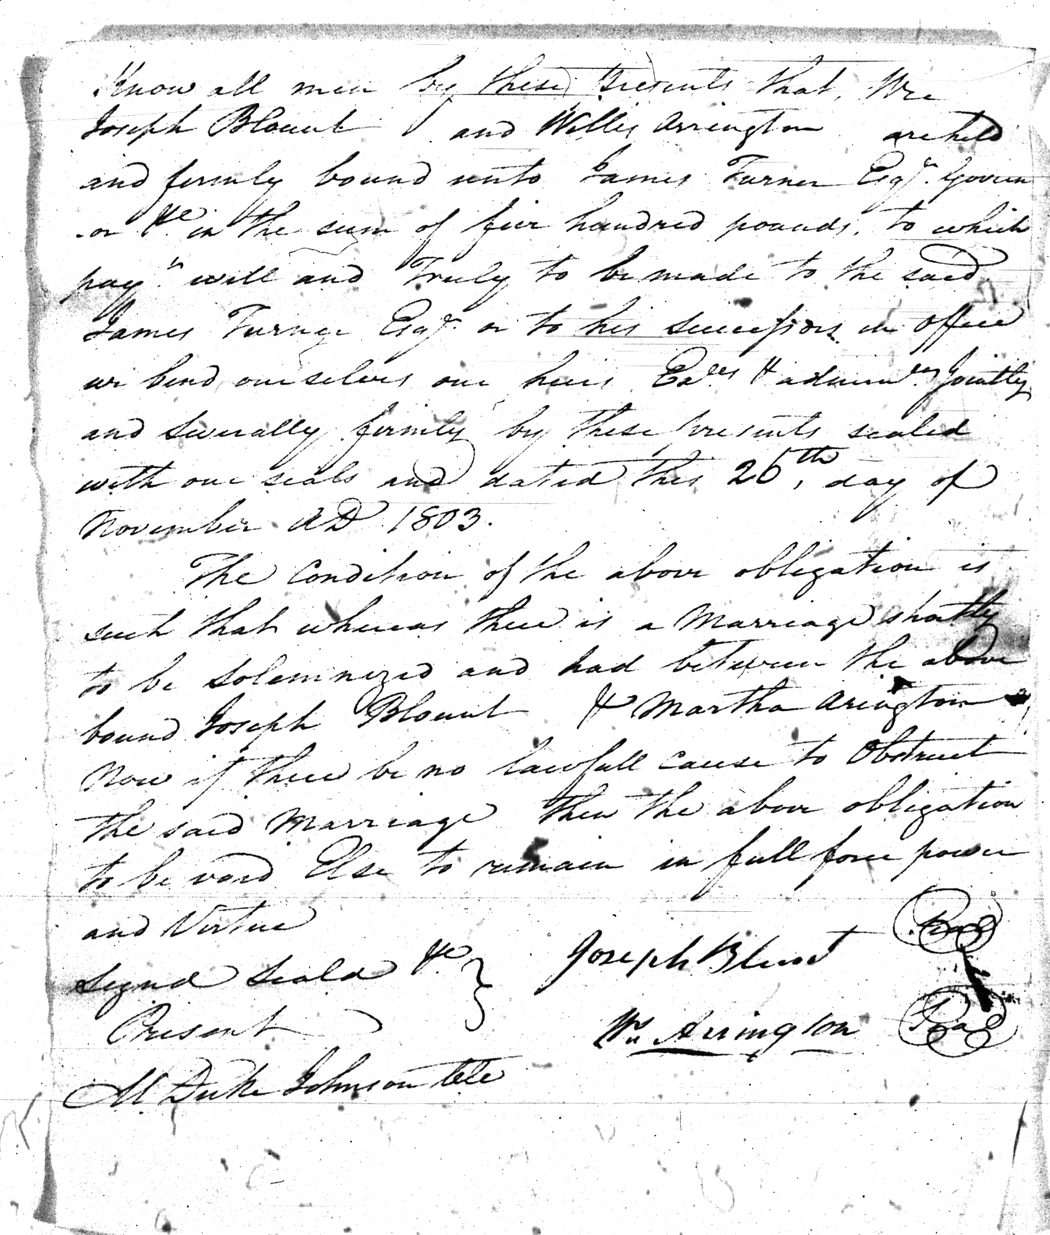 Know all men by these presents that, We
Joseph Blount and Willis Arrington are held
and firmly bound unto James Turner Esqr. Govern
-or &c in the sum of five hundred pounds, to which
paymt. will and Truly to be made to the said
James Turner Esqr. or to his Successors in Office
we bind ourselves our heirs Exrs & adminrs Jointly
and Severally firmly by these presents sealed
with our seals and dated this 26th, day of
November AD 1803.
The Condition of the above obligation is
such that whereas there is a Marriage shortly
to be Solemnized and had between the above
bound Joseph Blount & Martha Arington
Now if there be no lawfull cause to Obstruct
the said Marriage then the above obligation
to be void Else to remain in full force power
and Virtue
Signd Seald &c
Joseph Blount Seal
Present
Ws Arrington Seal
M. Duke Johnson